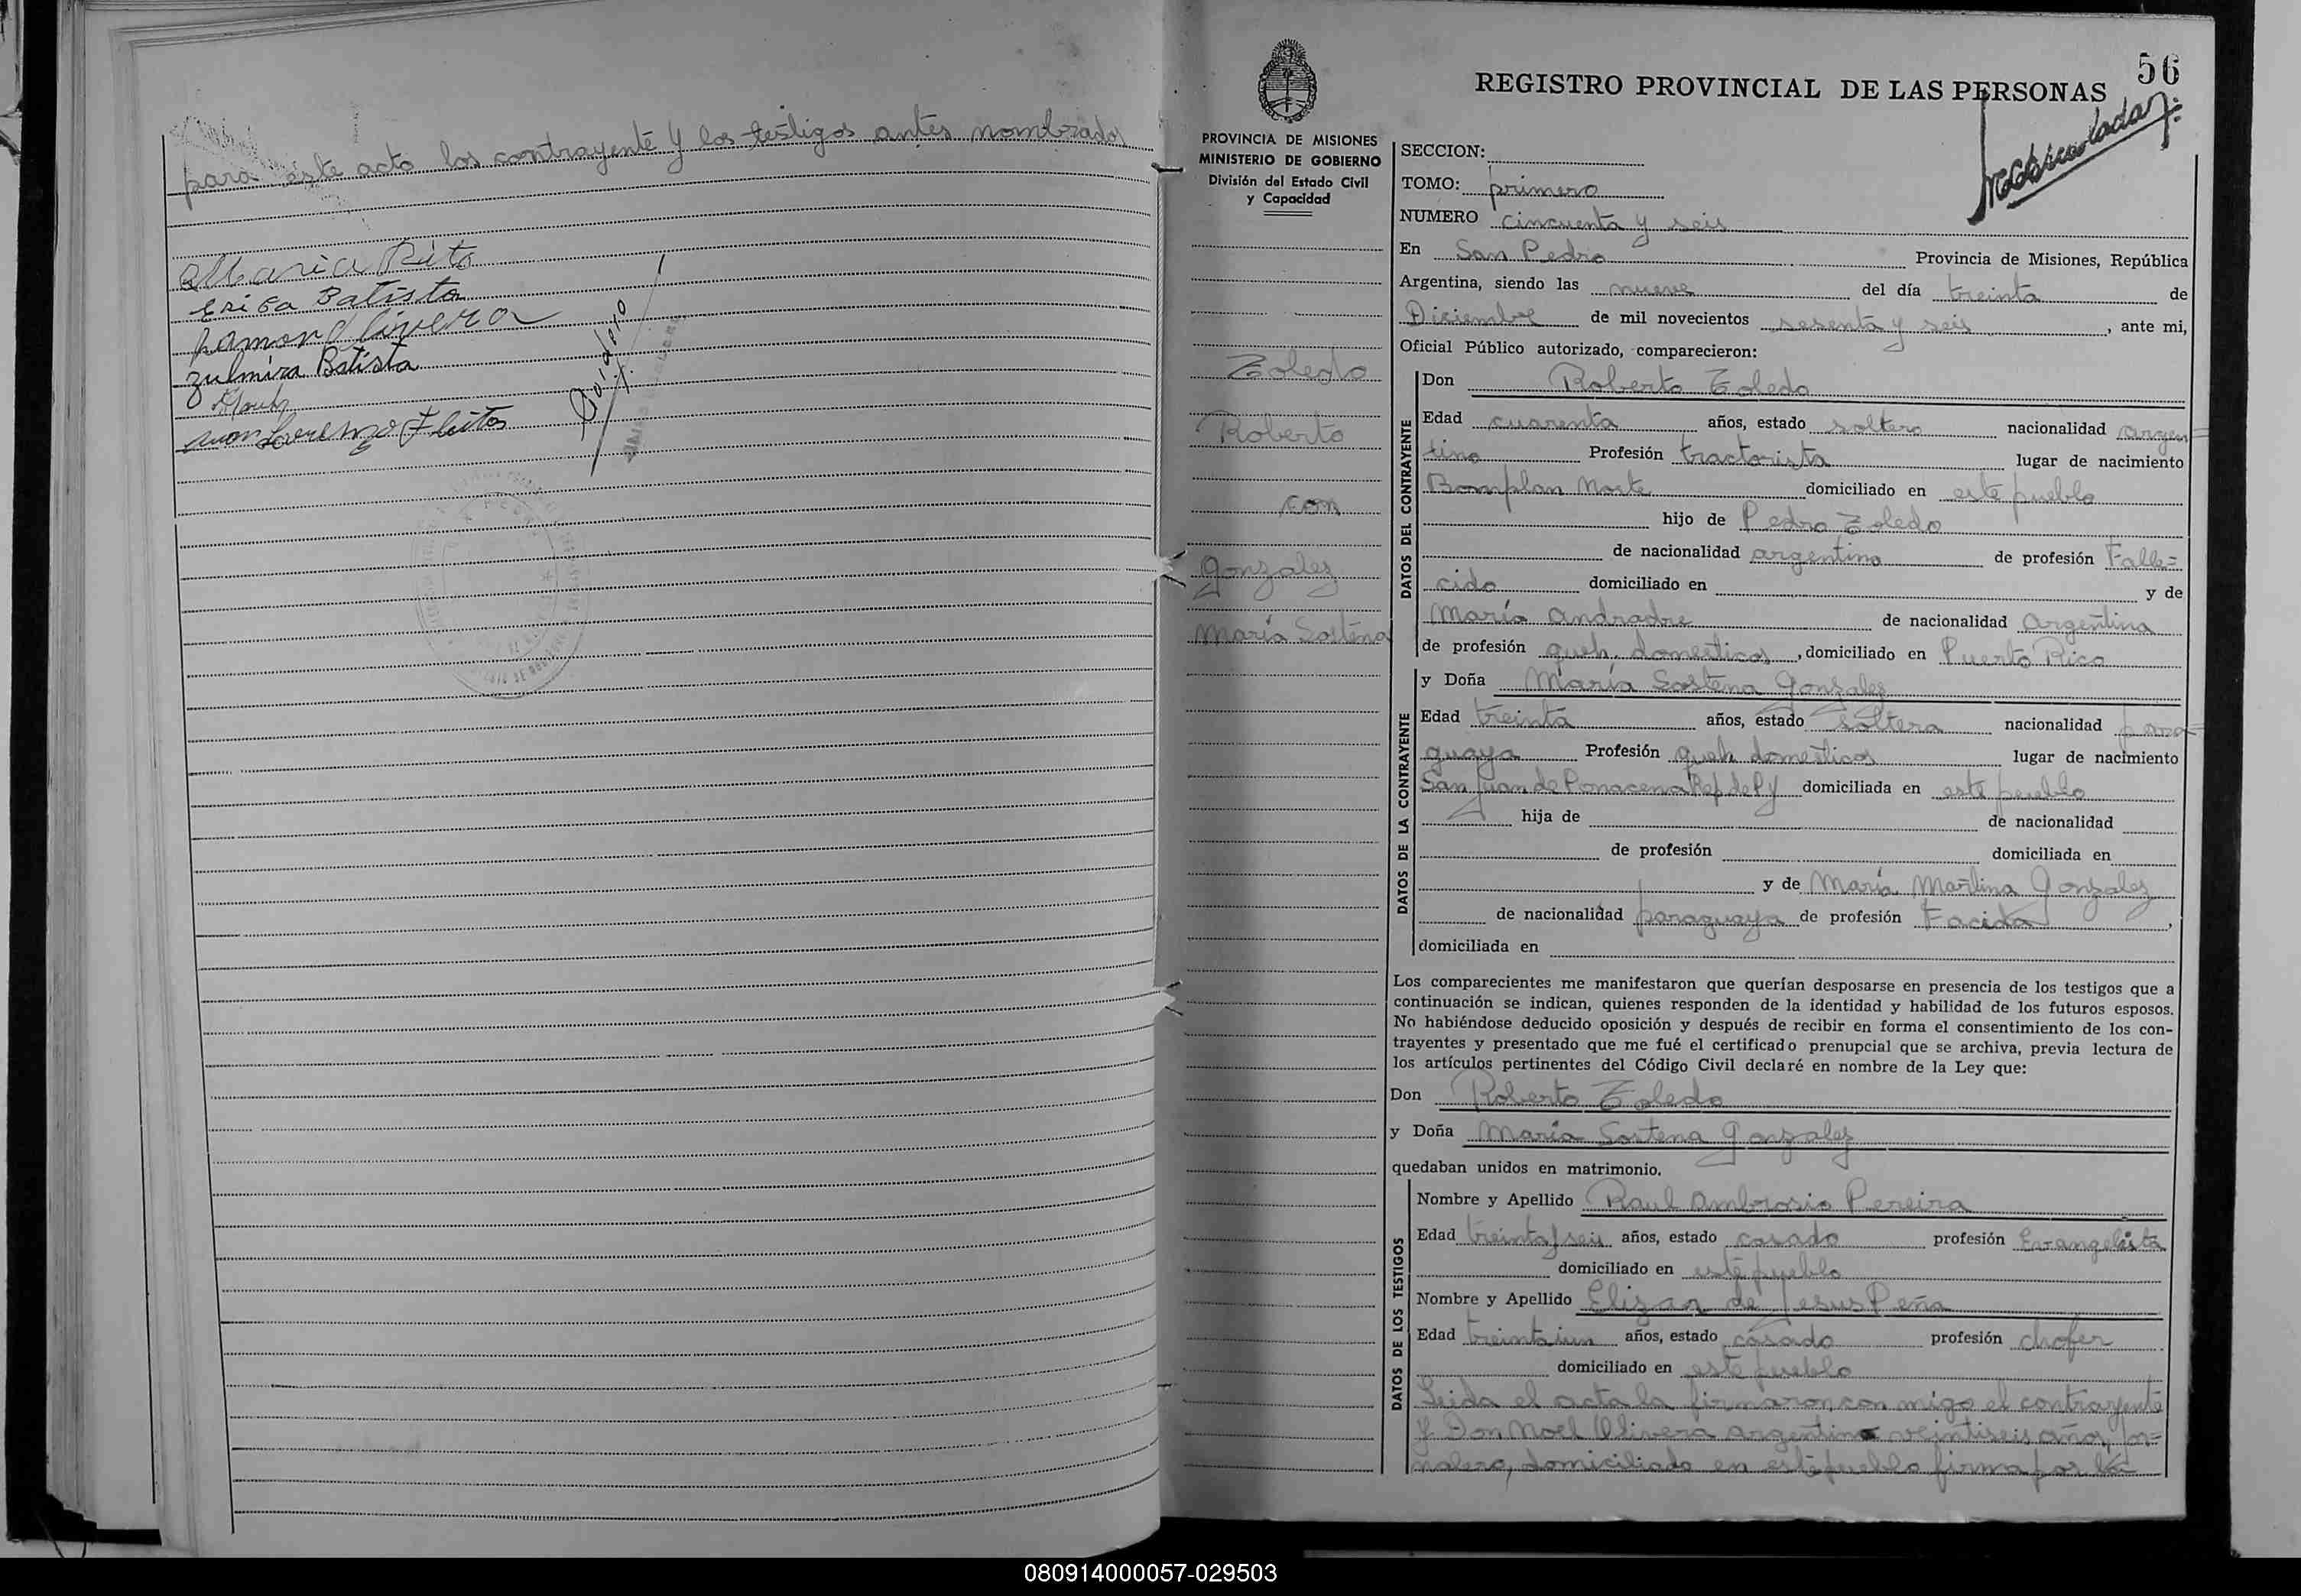 para éste acto los contrayente y los testigos antes nombrados
Maria Rita
Batista
Ramon Olivera
Zulmira Batista
Lorenzo Fleitas
56
REGISTRO PROVINCIAL DE LAS PERSONAS
PROVINCIA DE MISIONES
MINISTERIO DE GOBIERNO
División del Estado Civil
y Capacidad
Toledo
Roberto
con
Gonzalez
María Sostena
SECCION:
TOMO: primero
NUMERO cincuenta y seis
En San Pedro Provincia de Misiones, República
Argentina, siendo las nueve del día treinta de
Diciembre de mil novecientos sesenta y seis, ante mi,
Oficial Público autorizado, comparecieron:
DATOS DEL CONTRAYENTE
Don Roberto Toledo
Edad cuarenta años, estado soltero nacionalidad argen=
tino Profesión tractorista lugar de nacimiento
Bomplan Norte domiciliado en este pueblo
hijo de Pedro Toledo
de nacionalidad argentino de profesión Falle=
cido domiciliado en y de
María Andradre de nacionalidad Argentina
de profesión queh. domesticos, domiciliado en Puerto Rico
DATOS DE LA CONTRAYENTE
y Doña María Sostena Gonzalez
Edad treinta años, estado soltera nacionalidad para=
guaya Profesión queh domesticos lugar de nacimiento
San Juan de Rep de Py domiciliada en este pueblo
hija de de nacionalidad
de profesión domiciliada en
y de María Martina Gonzalez
de nacionalidad paraguaya de profesión Facida,
domiciliada en
Los comparecientes me manifestaron que querían desposarse en presencia de los testigos que a
continuación se indican, quienes responden de la identidad y habilidad de los futuros esposos.
No habiéndose deducido oposición y después de recibir en forma el consentimiento de los con-
trayentes y presentado que me fué el certificado prenupcial que se archiva, previa lectura de
los artículos pertinentes del Código Civil declaré en nombre de la Ley que:
Don Roberto Toledo
y Doña María Sostena Gonzalez
quedaban unidos en matrimonio.
DATOS DE LOS TESTIGOS
Nombre y Apellido Raul Ambrosio Pereira
Edad treinta y seis años, estado casado profesión Evangelista
domiciliado en este pueblo
Nombre y Apellido Elizar de Jesus Peña
Edad treintaiun años, estado casado profesión chofer
domiciliado en este pueblo
Leida el acta la firmaron con migo el contrayente
y Don Noel Olivera argentino veintiseis años, jor=
nalero, domiciliado en este pueblo firma por la
080914000057-029503